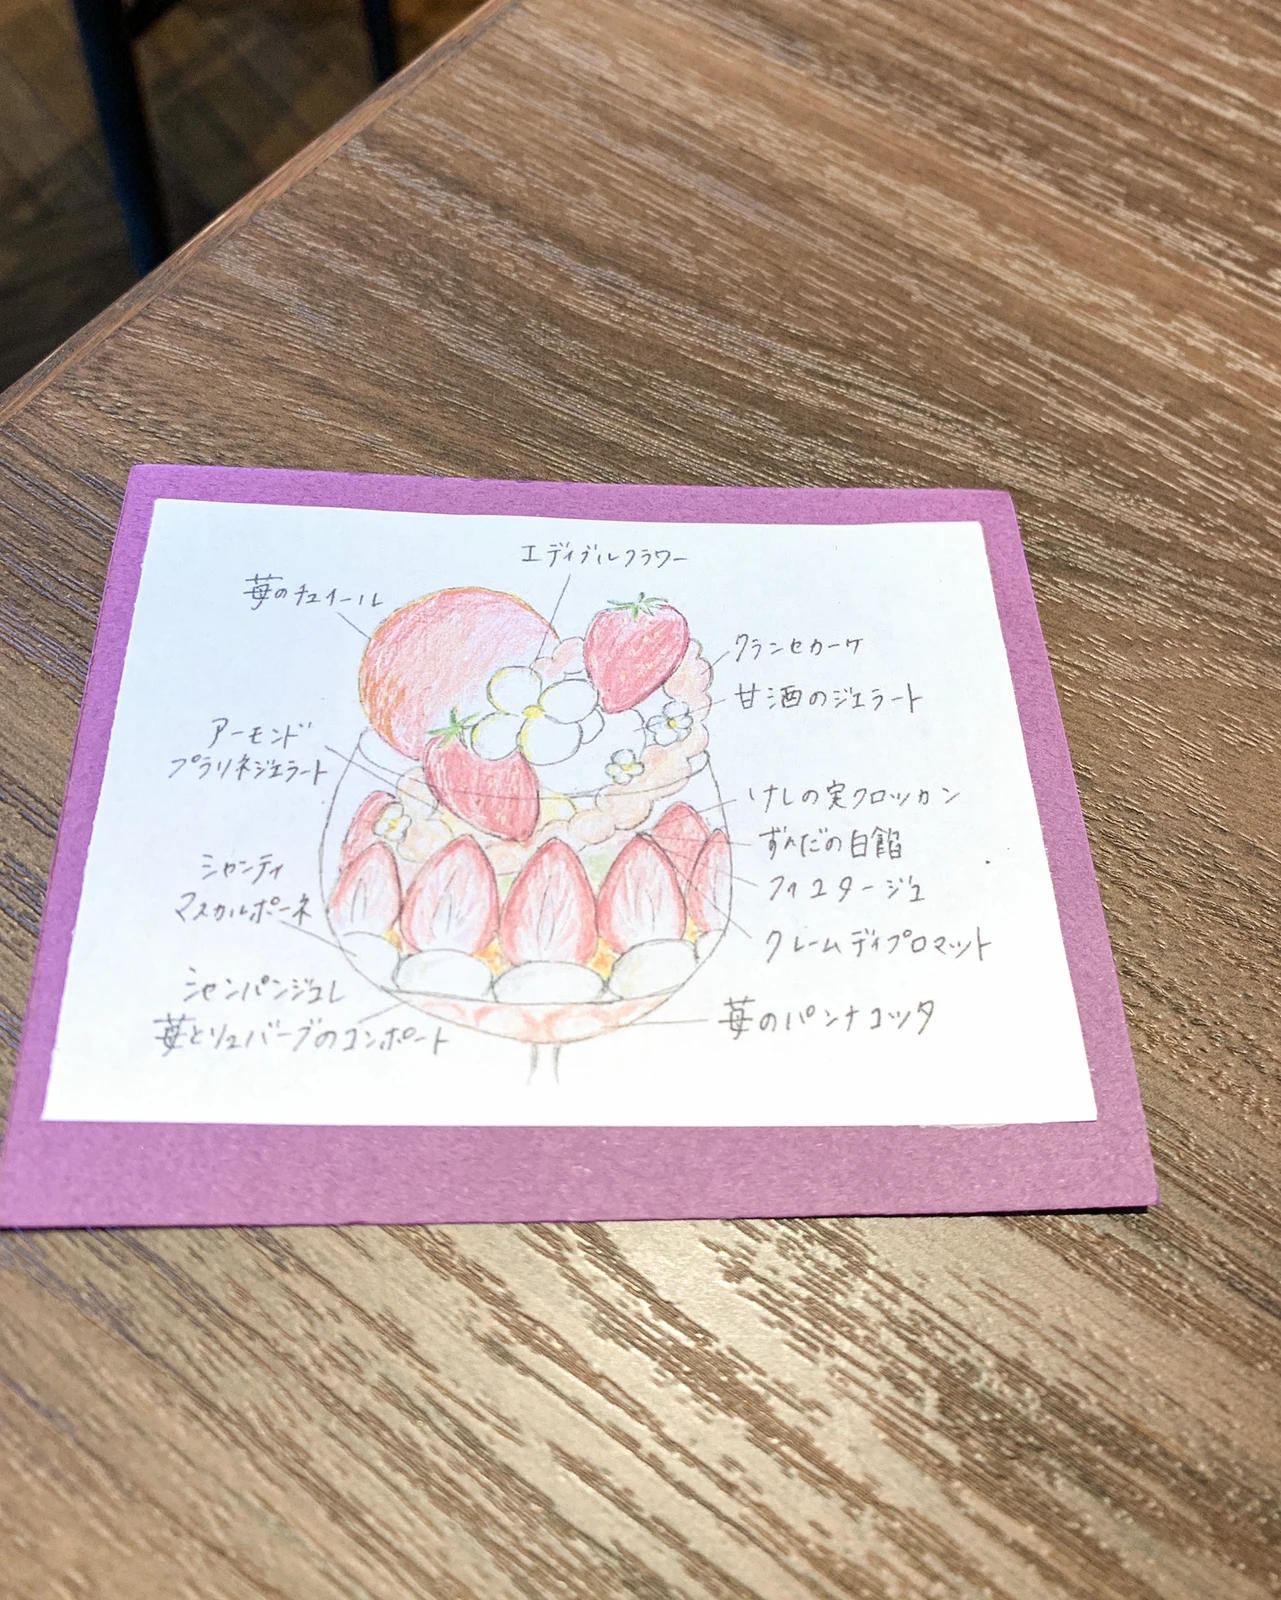 エディブルフラワー
苺のチュイール
クランセカーケ
甘酒のジェラート
アーモンド
プラリネジェラート
けしの実クロッカン
ずんだの白餡
フイユタージュ
シャンティ
マスカルポーネ
クレームディプロマット
シャンパンジュレ
苺とリュバーブのコンポート
苺のパンナコッタ